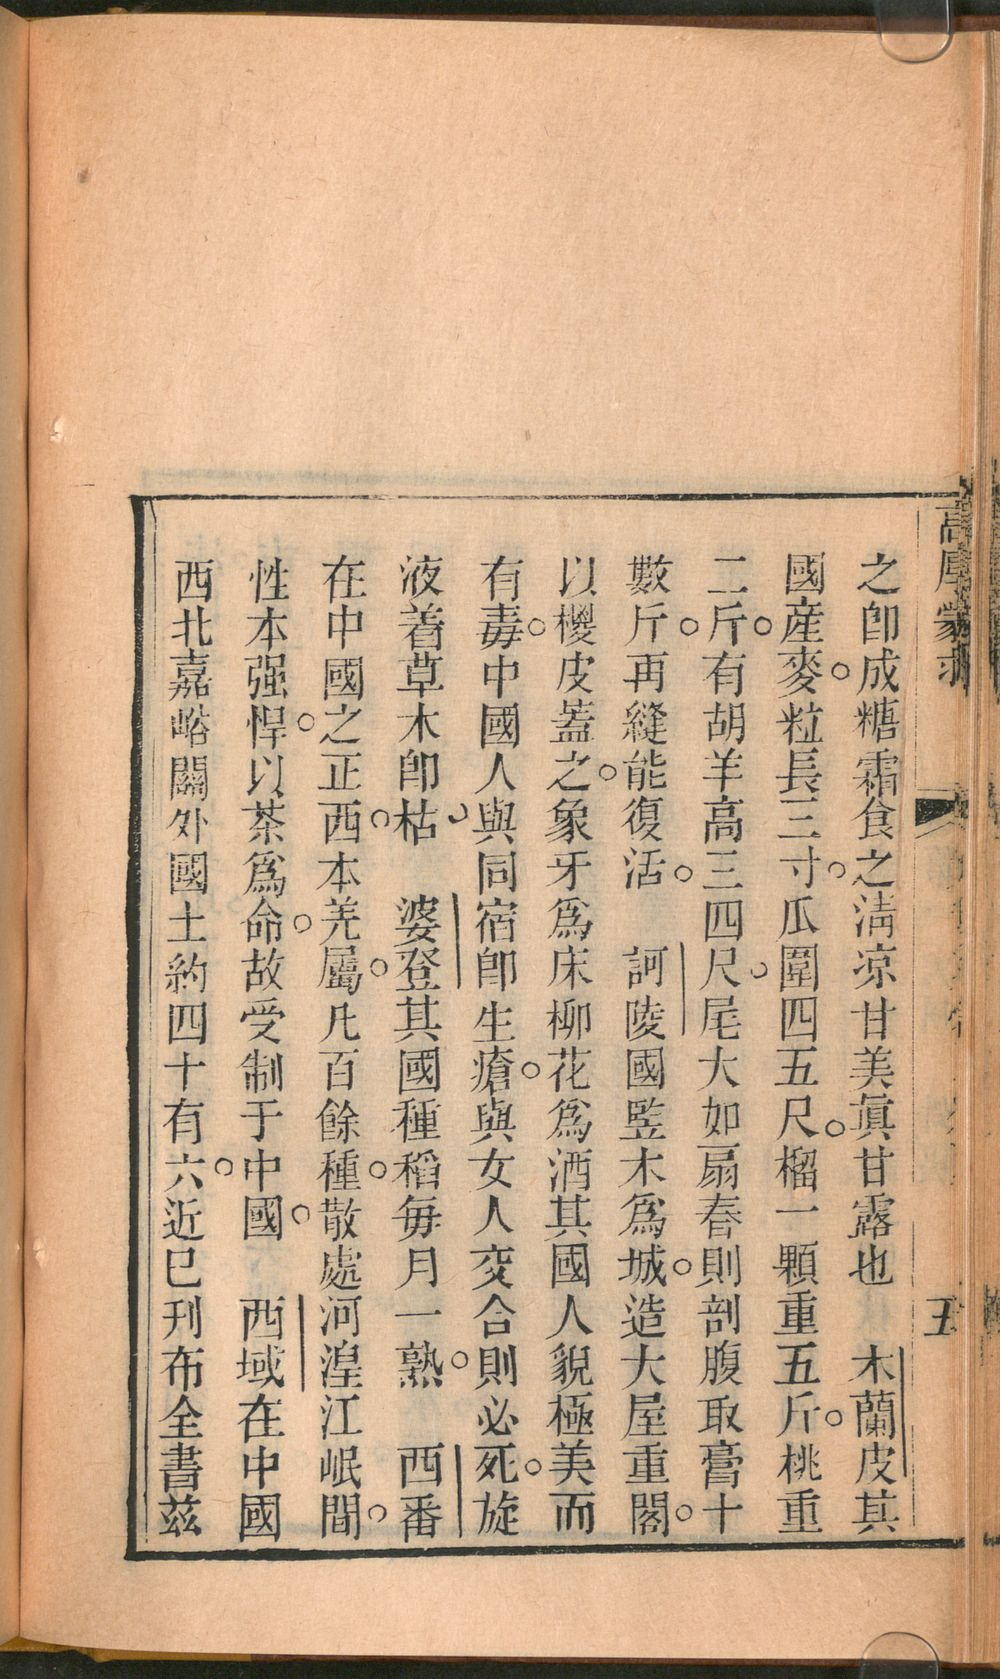 之卽成糖霜食之淸凉甘美眞甘露也　木蘭皮其
國產麥粒長三寸瓜圍四五尺榴一顆重五斤桃重
二斤有胡羊高三四尺尾大如扇春則剖腹取膏十
數斤再縫能復活　訶陵國竪木爲城造大屋重閣
以椶皮蓋之象牙爲床柳花爲酒其國人貌極美而
有毒中國人與同宿卽生瘡與女人交合則必死旋
液着草木卽枯　婆登其國種稻每月一熟　西番
在中國之正西本羌屬凡百餘種散處河湟江岷間
性本强悍以茶爲命故受制于中國　西域在中國
西北嘉峪關外國土約四十有六近已刋布全書茲
五